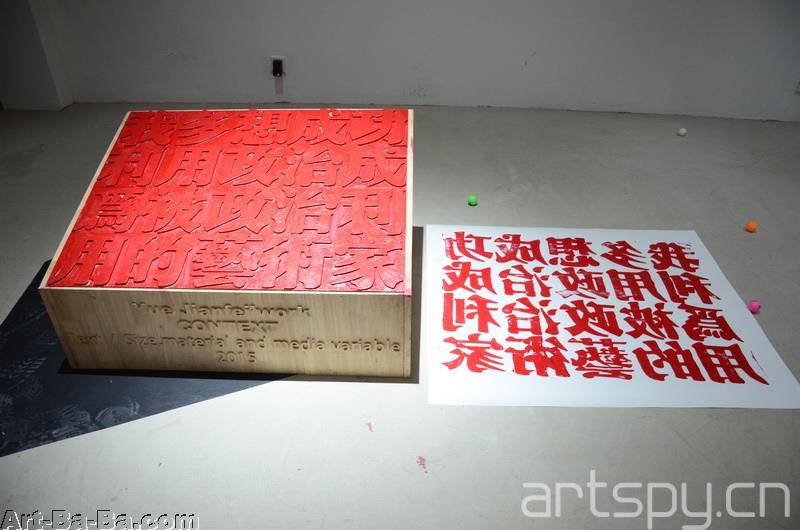 我多想成功
利用政治成
爲被政治利
用的藝術家
Yue Jianfei'work
CONTEXT
Text / Size,material and media variable
2015
我多想成功
利用政治成
爲被政治利
用的藝術家
Art-Ba-Ba.com
artspy.cn